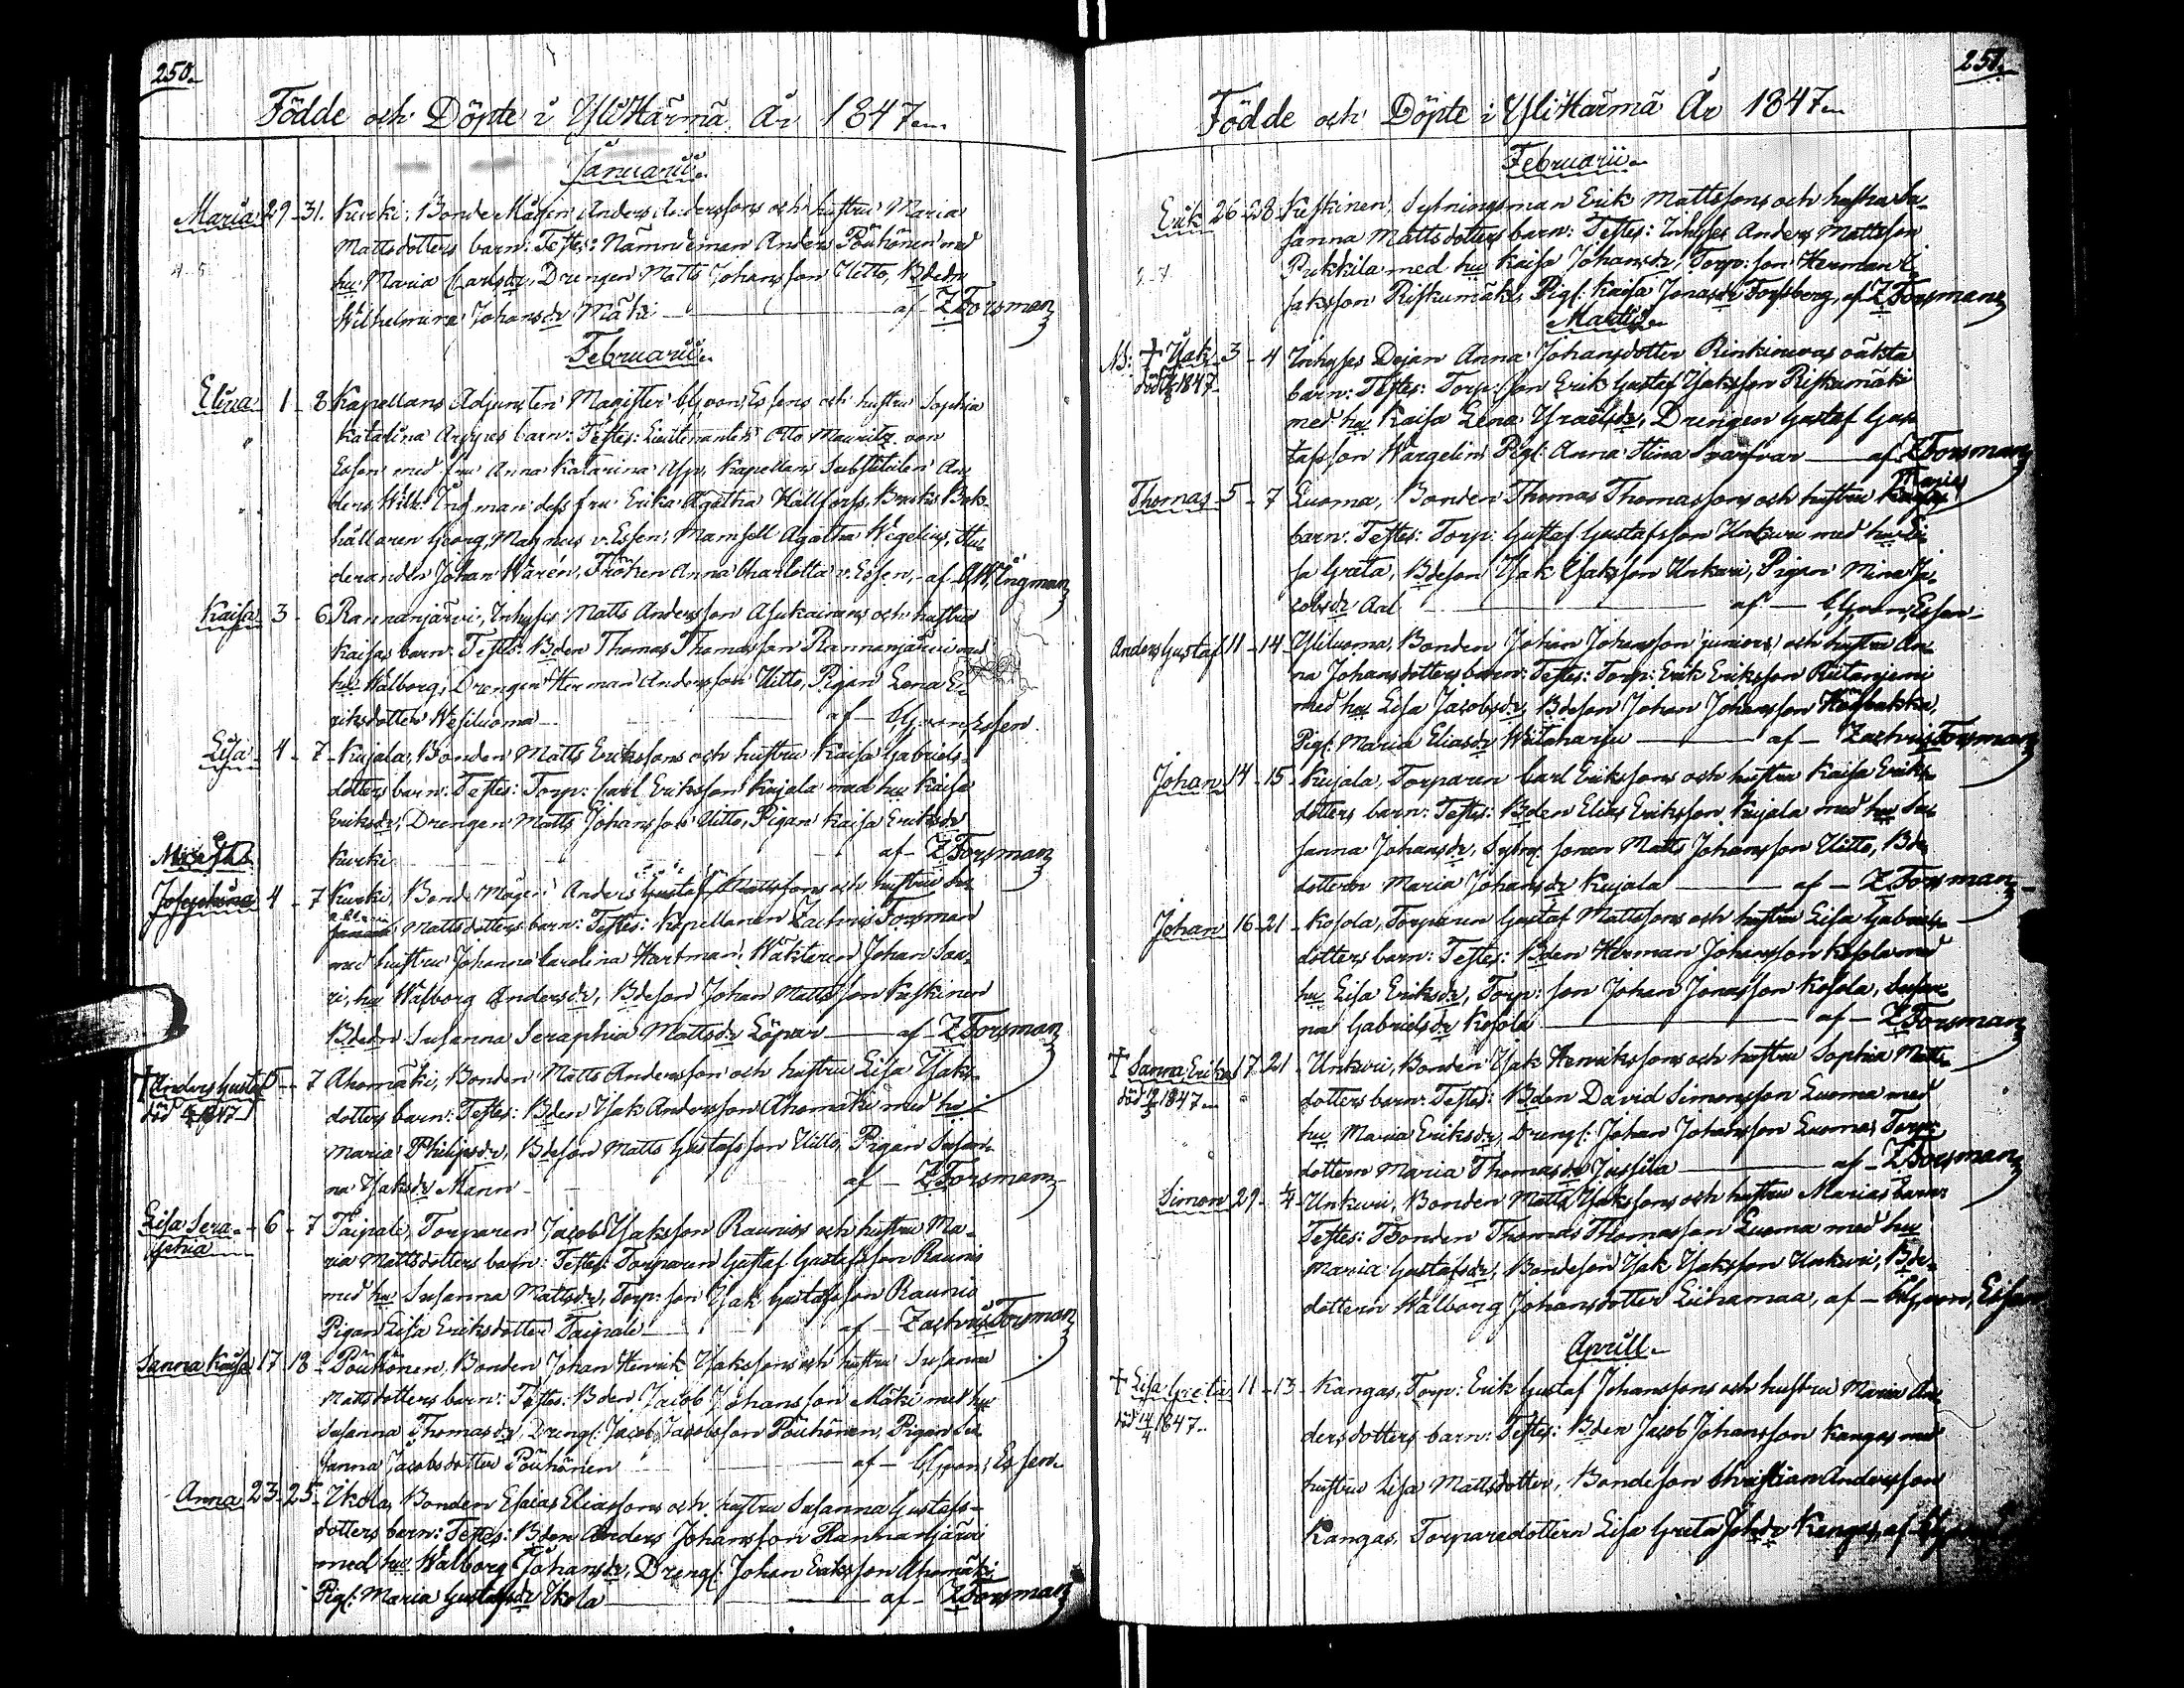 250.
Födde och Döpte i YliHärmä År 1847.
Januarii.
Maria 29 - 31. Kurki, Bonde Mågen Anders Anderssons och hustru Maria
Mattsdotters barn: Testes: Nämndeman Anders Pöuhönen med
hu Maria Carlsdr, Drengen Matts Johansson Uitto, Bdedn
Wilhelmina Johansdr Mäki — af ZForsman
Februarii.
Elina 1 - 8 Kapellans Adjuncten Magister CG von Essens och hustru Sophia
Katarina Arppes barn: Testes: Lieutenanten Otto Mauritz von
Essen med fru Anna Katarina Asp, Kapellans Substituten An-
ders Wilh: Ingman dess fru Erika Agatha Hallfors, Bruks Bok-
hållaren Georg Magnus v. Essen, Mamsell Agatha Wegelius, Stu-
deranden Johan Warén, Fröken Anna Charlotta v. Essen, af AW, Ingman
Kaisa 3 - 6 Rannanjärvi, Inhyses Matts Andersson Asukainens och hustru
Kaisas barn: Testes: Bden Thomas Thomasson Rannanjärvi med
hu Walborg, Drengen Herman Andersson Uitto, Pigan Lena E-
riksdotter Wesiluoma — af — CG von Essen.
Lisa 4 - 7 - Kujala, Bonden Matts Erikssons och hustru Kaisa Gabriels-
dotters barn: Testes: Torp: Carl Eriksson Kujala med hu Kaisa
Eriksdr, Drengen Matts Johansson Uitto, Pigan Kaisa Eriksdr
Kurki — af — ZForsman
Josephina 4 - 7 Kurki, Bonde Mågen Anders Gustaf Mattssons och hustru
Mattsdotters barn: Testes: Kapellanen Zachris Forsman
med hustru Johanna Carolina Hartman, Wäktaren Johan Saa-
ri, hu Walborg Andersdr, Bdeson Johan Mattsson Keskinen
Bdedn Susanna Seraphia Mattsdr Löpar — af — ZForsman
† Anders Gustaf 5 - 7 Ahomäki, Bonden Matts Andersson och hustru Lisa Isaks-
död 1847
dotters barn: Testes: Bden Isak Andersson Ahomäki med hu
Maria Philipsdr, Bdeson Matts Gustafsson Uitto, Pigan Susan-
na Isaksdr Mann — af — ZForsman
Lisa Sera- 6 - 7 Taipale, Torparen Jacob Isaksson Raunios och hustru Ma-
phia
ria Mattsdotters barn: Testes: Torparen Gustaf Gustafsson Raunio
med hu Susanna Mattsdr, Torp: son Isak Gustafsson Raunio
Pigan Lisa Eriksdotter Taipale — af — Zachris Forsman
Sanna Kaisa 17 - 18 - Pöuhönen, Bonden Johan Henrik Isakssons och hustru Susanna
Mattsdotters barn: Testes: Bden Jacob Johansson Mäki med hu
Susanna Thomasdr, Drengs: Jacob Jacobsson Pöuhönen, Pigan Su-
sanna Jacobsdotter Pöuhönen — af — CG von Essen.
Anna 23 - 25 - Ikola, Bonden Esaias Eliassons och hustru Susanna Gustafs-
dotters barn: Testes: Bden Anders Johansson Rannanjärvi
med hu Walborg Johansdr, Drengs: Johan Eriksson Ahomäki
Pigs: Maria Gustafsdr Ikola — af — ZForsman
251.
Födde och Döpte i YliHärmä År 1847.
Februarii.
Erik 26 - 28 - Keskinen, Sytningsman Erik Mattssons och hustru Su-
sanna Mattsdotters barn: Testes: Inhyses Anders Mattsson
Pukkila med hu Kaisa Johansdr, Torp: son Herman I-
saksson Riskumäki, Pigs: Kaisa Jonasdr Forsberg, af ZForsman
Martii.
NB: † Isak 3 - 4 Inhyses Dejan Anna Johansdotter Rinkinevas oäkta
död 1847.
barn: Testes: Torp: son Erik Gustaf Isaksson Riskumäki
med hu Kaisa Lena Israelsdr, Drengen Gustaf Gus-
tafsson Wargelin, Pigs: Anna Stina Svarfvar — af ZForsman
Thomas 5 - 7 Luoma, Bonden Thomas Thomassons och hustru Marias
barn: Testes: Torp: Gustaf Gustafsson Unkuri med hu Li-
sa Greta, Bdeson Isak Isaksson Unkuri, Pigan Mina Ja-
cobsdr Aal — af — CG von Essen —
Anders Gustaf 11 - 14 - Yliluoma, Bonden Johan Johansson juniors, och hustru An-
na Johansdotters barn: Testes: Torp: Erik Eriksson Riitaniemi
med hu Lisa Jacobsdr, Bdeson Johan Johansson
Pigs: Maria Eliasdr Wiitaharju — af — Zachris Forsman
Johan 14 - 15 - Kujala, Torparen Carl Erikssons och hustru Kaisa Eriks-
dotters barn: Testes: Bden Elias Eriksson Kujala med hu Su-
sanna Johansdr, Sytng: sonen Matts Johansson Uitto, Bde
dottern Maria Johansdr Kujala — af — ZForsman —
Johan 16 - 21 - Kosola, Torparen Gustaf Mattssons och hustru Lisa Gabriels-
dotters barn: Testes: Bden Herman Johansson Kosola med
hu Lisa Eriksdr, Torp: son Johan Jonasson Kosola, Susan-
na Gabrielsdr Kosola — af — ZForsman
† Sanna Erika 17 - 21 - Unkuri, Bonden Isak Henrikssons och hustru Sophia Matts-
död 1847
dotters barn: Testes: Bden David Simonsson Luoma med
hu Maria Eriksdr, Drengs: Johan Johansson Luoma, Torp:
dottern Maria Thomasdr Jussila — af — ZForsman
Simon 29 - 4 - Unkuri, Bonden Matts Isakssons och hustru Marias barn:
Testes: Bonden Thomas Thomasson Luoma med hu
Maria Gustafsdr, Bondeson Isak Isaksson Unkuri, Bde-
dottern Walborg Johansdotter Liinamaa, af — CG von Essen
Aprill.
† Lisa Greta 11 - 13 - Kangas, Torp: Erik Gustaf Johanssons och hustru Maria An-
död 14/4 1847.
dersdotters barn: Testes: Bden Jacob Johansson Kangas med
hustru Lisa Mattsdotter, Bondeson Christian Andersson
Kangas, Torparedottern Lisa Greta Johsdr Kangas, af